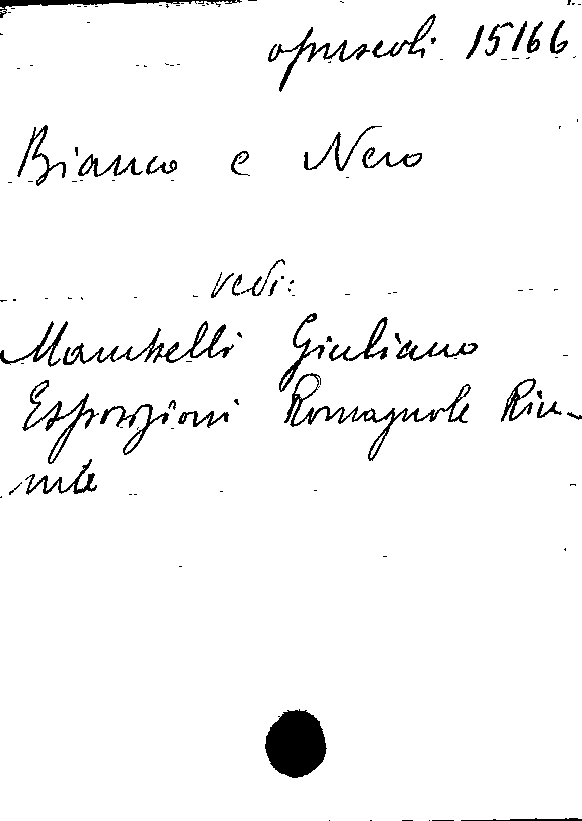 opuscoli 15166
Bianco e Nero
vedi:
Mambelli Giuliano
Esposizioni Romagnole Riu-
nite